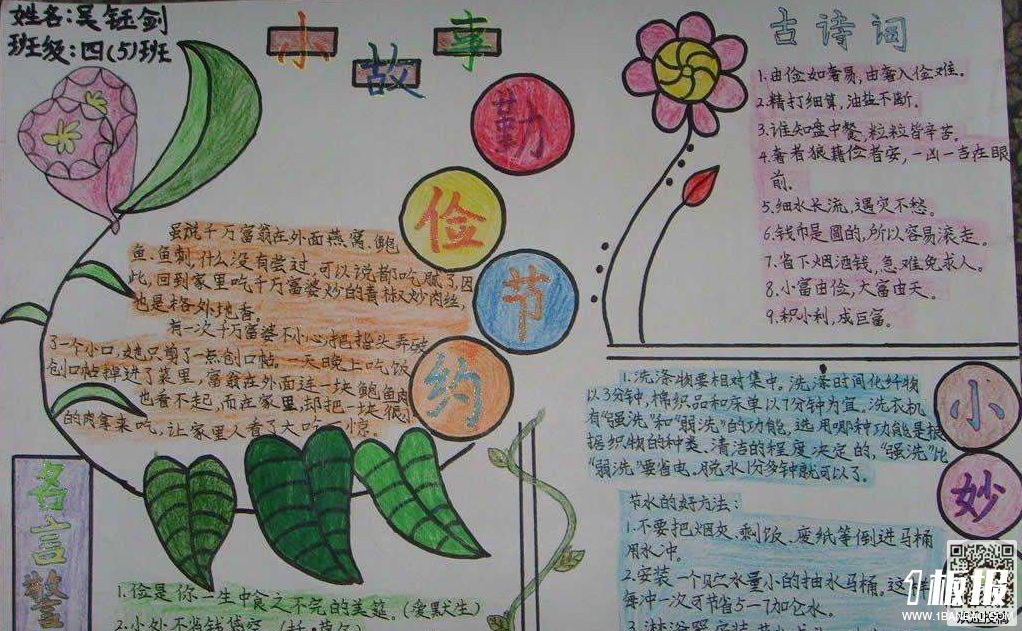 姓名:吴钰剑
班级:四(5)班
小故事
勤俭节约
虽说千万富翁在外面燕窝、鲍
鱼、鱼刺,什么没有尝过,可以说都吃腻了,因
此,回到家里吃千万富婆炒的青椒炒肉丝,
也是格外地香。
有一次千万富婆不小心把指头弄破
了一个小口,她只剪了一点创口帖。一天晚上吃饭
创口帖掉进了菜里,富翁在外面连一块鲍鱼肉
也看不起,而在家里,却把一块很小
的肉拿来吃,让家里人看了大吃一惊。
古诗词
1.由俭如奢易,由奢入俭难。
2.精打细算,油盐不断。
3.谁知盘中餐,粒粒皆辛苦。
4.奢者狼藉俭者安,一凶一吉在眼
前。
5.细水长流,遇灾不愁。
6.钱币是圆的,所以容易滚走。
7.省下烟酒钱,急难免求人。
8.小富由俭,大富由天。
9.积小利,成巨富。
小妙
1.洗涤物要相对集中。洗涤时间化纤物
以3分钟,棉织品和床单以7分钟为宜。洗衣机
有“强洗”和“弱洗”的功能,选用哪种功能是根
据织物的种类、清洁的程度决定的,“强洗”比
“弱洗”要省电。脱水1分多钟就可以了。
节水的好方法:
1.不要把烟灰、剩饭、废纸等倒进马桶
用水冲。
2.安装一个贮水量小的抽水马桶,这样
每冲一次可节省5—7加仑水。
名言警
1.俭是你一生中食之不完的美筵。(爱默生)
1板报
WWW.1BANBAO.COM